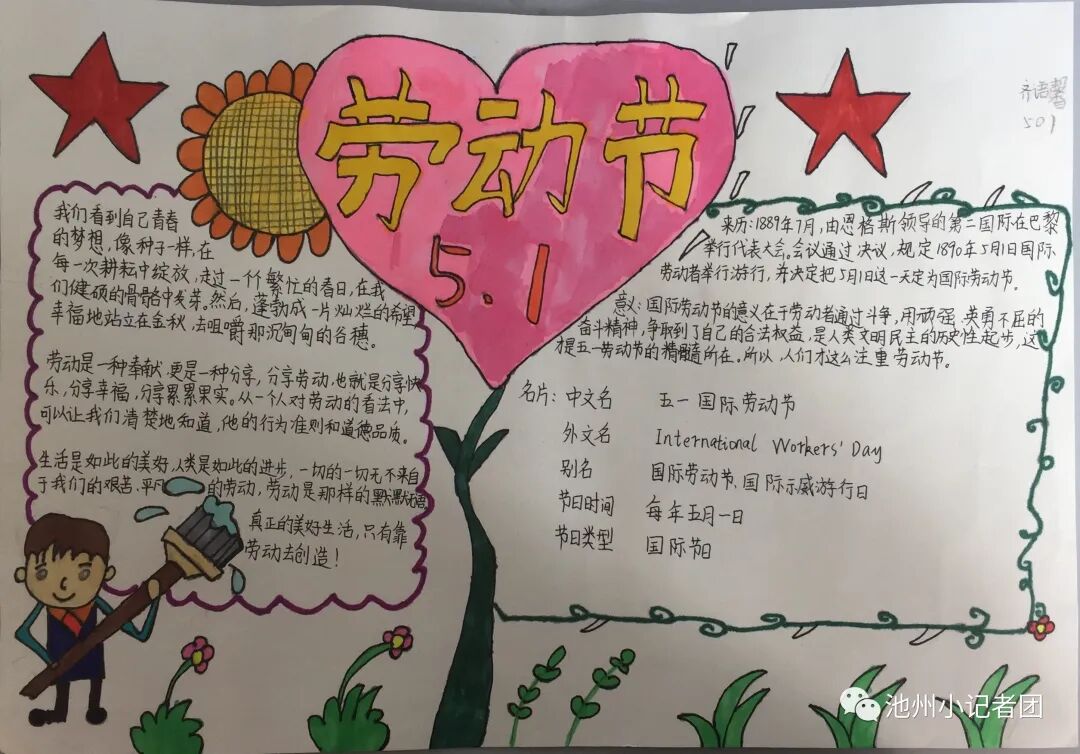 劳动节
5.1
齐语馨
501
我们看到自己青春
的梦想,像种子一样,在
每一次耕耘中绽放,走过一个个繁忙的春日,在我
们健硕的骨骼中发芽。然后,蓬勃成一片灿烂的希望,
幸福地站立在金秋,去咀嚼那沉甸甸的谷穗。
劳动是一种奉献,更是一种分享,分享劳动,也就是分享快
乐,分享幸福,分享累累果实。从一个人对劳动的看法中,
可以让我们清楚地知道,他的行为准则和道德品质。
生活是如此的美好,人类是如此的进步,一切的一切无不来自
于我们的艰苦、平凡的劳动,劳动是那样的默默无语
真正的美好生活,只有靠
劳动去创造!
来历:1889年7月,由恩格斯领导的第二国际在巴黎
举行代表大会。会议通过决议,规定1890年5月1日国际
劳动者举行游行,并决定把5月1日这一天定为国际劳动节。
意义:国际劳动节的意义在于劳动者通过斗争,用顽强、英勇不屈的
奋斗精神,争取到了自己的合法权益,是人类文明民主的历史性起步,这
才是五一劳动节的精髓所在。所以,人们才这么注重劳动节。
名片:中文名 五一国际劳动节
外文名 International Workers' Day
别名 国际劳动节、国际示威游行日
节日时间 每年五月一日
节日类型 国际节日
池州小记者团